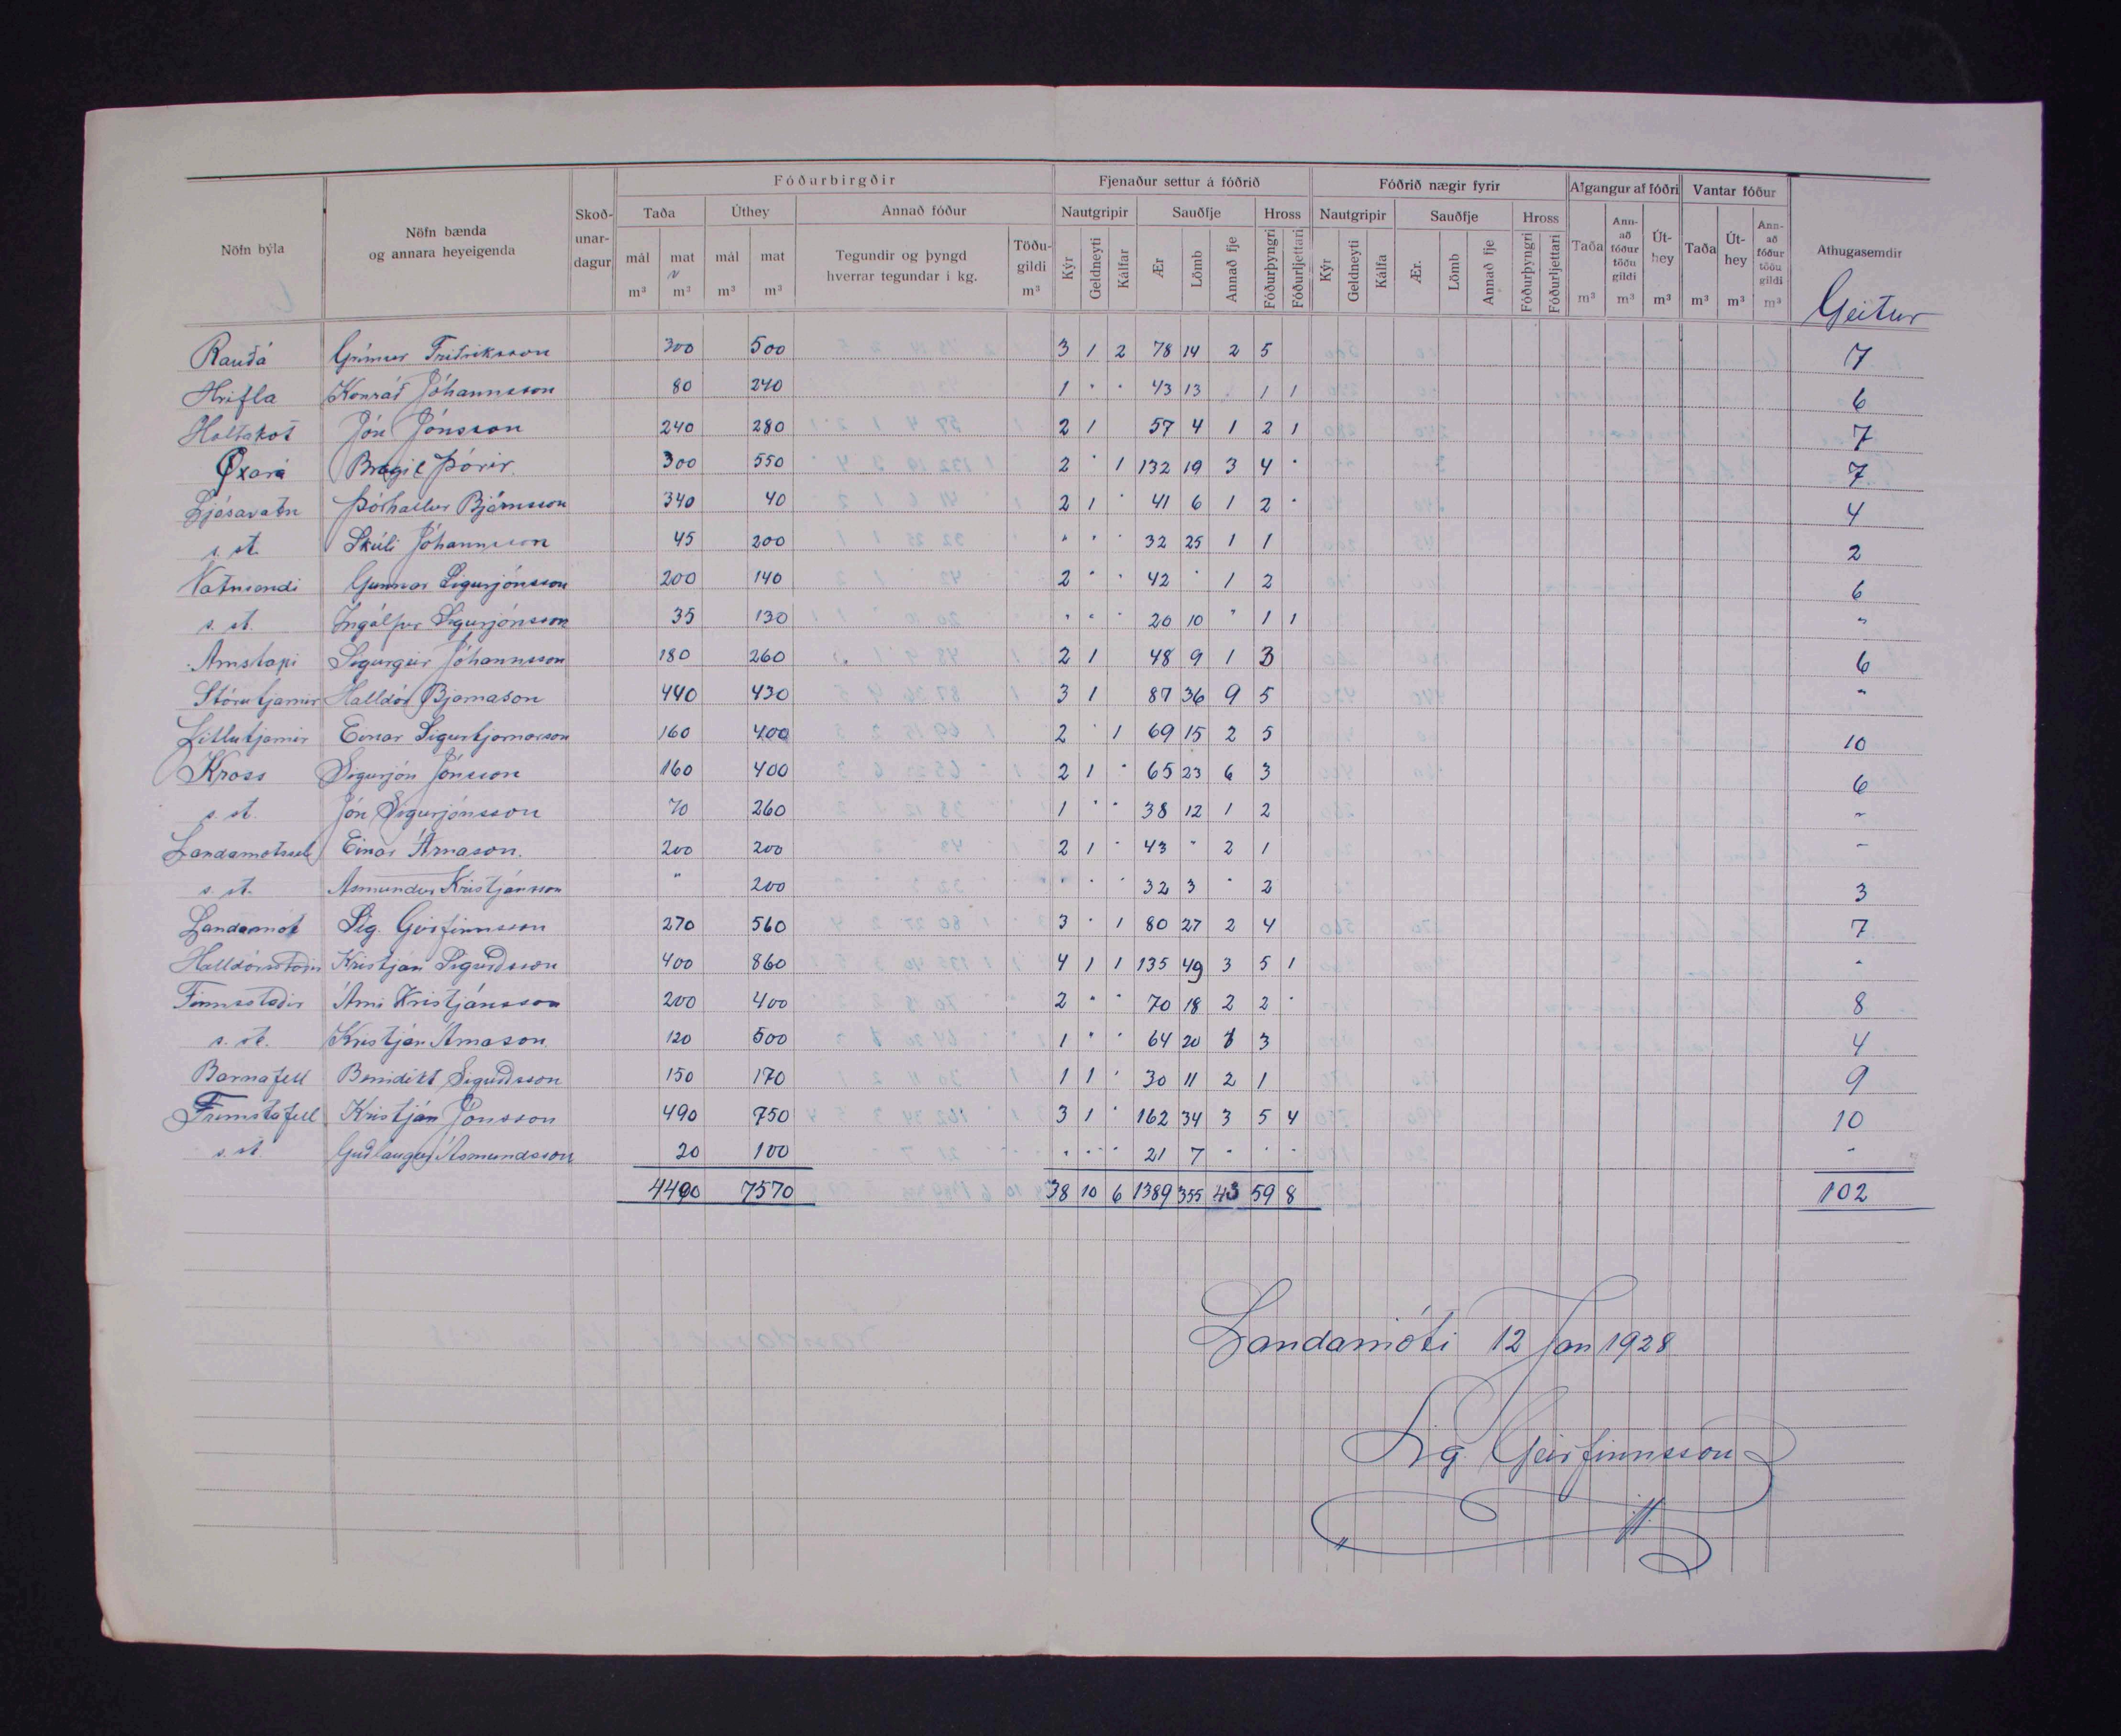 Fóðurbirgðir Fjenaður settur á fóðrið Fóðrið nægir fyrir Afgangur af fóðri Vantar fóður
Nöfn býla Nöfn bænda og annara heyeigenda Skoð-unar-dagur Taða Úthey Annað fóður Nautgripir Sauðfje Hross Nautgripir Sauðfje Hross Taða Ann-að fóður töðu gildi Út-hey Taða Út-hey Ann-að fóður töðu gildi Athugasemdir
mál mat mál mat Tegundir og þyngd hverrar tegundar í kg. Töðu-gildi Kýr Geldneyti Kálfar Ær Lömb Annað fje Fóðurþyngri Fóðurljettari Kýr Geldneyti Kálfa Ær. Lömb Annað fje Fóðurþyngri Fóðurljettari
m³ m³ m³ m³ m³ m³ m³ m³ m³ m³ m³ Geitur
Rauðá Grímur Friðriksson 300 500 3 1 2 78 14 2 5 7
Hrifla Konráð Jóhannsson 80 240 1 " " 43 13 1 1 6
Holtakot Jón Jónsson 240 280 2 1 57 4 1 2 1 7
Öxará Bragi & Þórir. 300 550 2 " 1 132 19 3 4 " 7
Ljósavatn Þórhallur Björnsson 340 40 2 1 " 41 6 1 2 " 4
s. st. Skúli Jóhannsson 45 200 " " " 32 25 1 1 2
Vatnsendi Gunnar Sigurjónsson 200 140 2 " " 42 " 1 2 6
s. st. Ingólfur Sigurjónsson 35 130 " " " 20 10 " 1 1 "
Arnstapi Sigurgeir Jóhannsson 180 260 2 1 48 9 1 3 6
Stórutjarnir Halldór Bjarnason 440 430 3 1 87 36 9 5 "
Litlutjarnir Einar Sigurbjarnarson 160 400 2 " 1 69 15 2 5 10
Kross Sigurjón Jónsson 160 400 2 1 " 65 23 6 3 6
s. st. Jón Sigurjónsson 70 260 1 " " 38 12 1 2 "
Landamótssel Einar Árnason. 200 200 2 1 " 43 " 2 1 "
s. st. Ásmundur Kristjánsson " 200 " " " 32 3 " 2 3
Landamót Sig. Geirfinnsson 270 560 3 " 1 80 27 2 4 7
Halldórsstaðir Kristján Sigurðsson 400 860 4 1 1 135 49 3 5 1 "
Finnsstaðir Árni Kristjánsson 200 400 2 " " 70 18 2 2 " 8
s. st. Kristján Árnason 120 500 1 " " 64 20 1 3 4
Barnafell Benidikt Sigurðsson 150 170 1 1 " 30 11 2 1 9
Fremstafell Kristján Jónsson 490 750 3 1 " 162 34 3 5 4 10
s. st Guðlaugur Ásmundsson 20 100 " " " 21 7 " " " "
4490 7570 38 10 6 1389 355 43 59 8 102
Landamóti 12 Jan 1928
Sig. Geirfinnsson